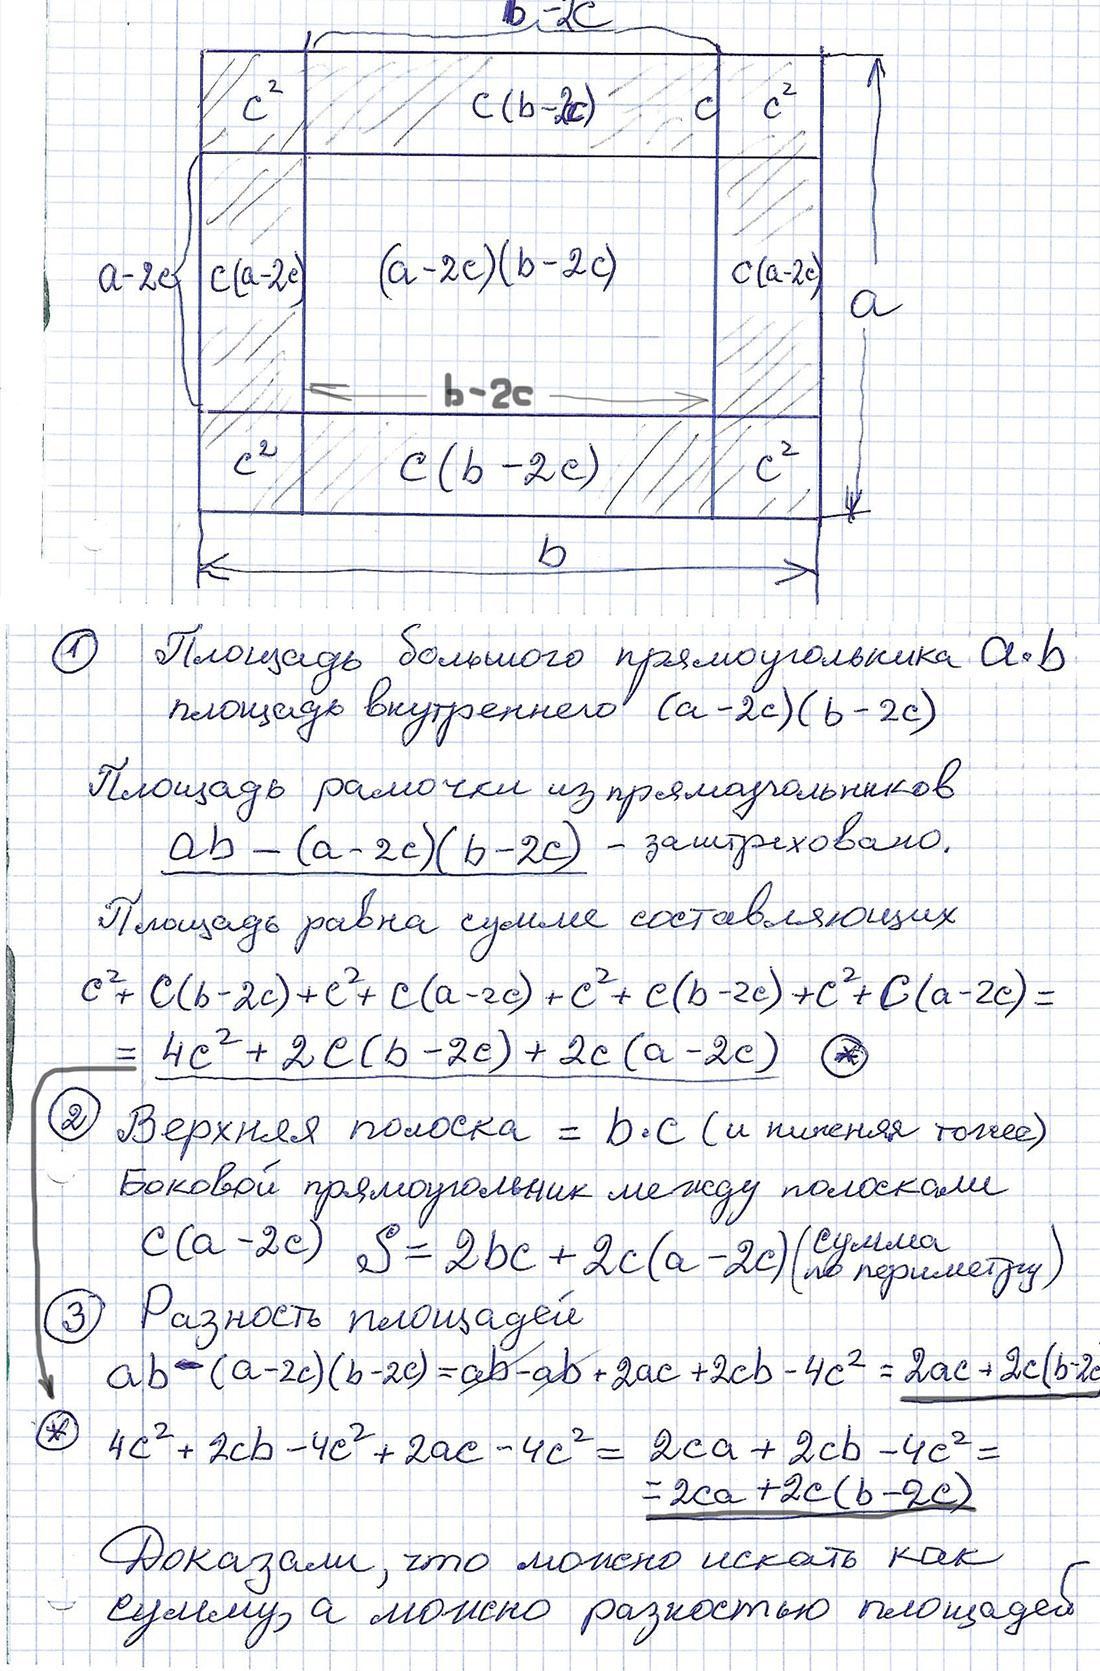 b-2c
c²
c(b-2c)
c
c²
a-2c
c(a-2c)
(a-2c)(b-2c)
c(a-2c)
a
b-2c
c²
c(b-2c)
c²
b
① Площадь большого прямоугольника a·b
площадь внутреннего (a-2c)(b-2c)
Площадь рамочки из прямоугольников
ab - (a-2c)(b-2c) - заштриховано.
Площадь равна сумме составляющих
c²+ c(b-2c)+c²+ c(a-2c)+c²+ c(b-2c)+c²+c(a-2c)=
= 4c²+2c(b-2c)+2c(a-2c) *
② Верхняя полоска = b·c (и нижняя тоже)
Боковой прямоугольник между полосками
c(a-2c) S=2bc+2c(a-2c)(сумма
по периметру)
③ Разность площадей
ab-(a-2c)(b-2c)=ab-ab+2ac+2cb-4c²=2ac+2c(b-2c
* 4c²+2cb-4c²+2ac-4c²= 2ca+2cb-4c²=
=2ca+2c(b-2c)
Доказали, что можно искать как
сумму, а можно разностью площадей